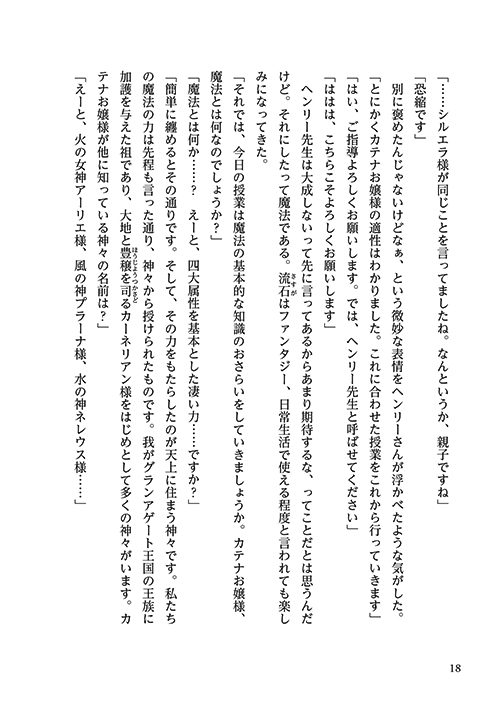 「……シルエラ様が同じことを言ってましたね。なんというか、親子ですね」
「恐縮です」
　別に褒めたんじゃないけどなぁ、という微妙な表情をヘンリーさんが浮かべたような気がした。
「とにかくカテナお嬢様の適性はわかりました。これに合わせた授業をこれから行っていきます」
「はい、ご指導よろしくお願いします。では、ヘンリー先生と呼ばせてください」
「ははは、こちらこそよろしくお願いします」
　ヘンリー先生は大成しないって先に言ってあるからあまり期待するな、ってことだとは思うんだ
けど。それにしたって魔法である。流石はファンタジー、日常生活で使える程度と言われても楽し
みになってきた。
「それでは、今日の授業は魔法の基本的な知識のおさらいをしていきましょうか。カテナお嬢様、
魔法とは何なのでしょうか？」
「魔法とは何か……？　えーと、四大属性を基本とした凄い力……ですか？」
「簡単に纏めるとその通りです。そして、その力をもたらしたのが天上に住まう神々です。私たち
の魔法の力は先程も言った通り、神々から授けられたものです。我がグランアゲート王国の王族に
加護を与えた祖であり、大地と豊穣を司るカーネリアン様をはじめとして多くの神々がいます。カ
テナお嬢様が他に知っている神々の名前は？」
「えーと、火の女神アーリエ様、風の神プラーナ様、水の神ネレウス様……」
18